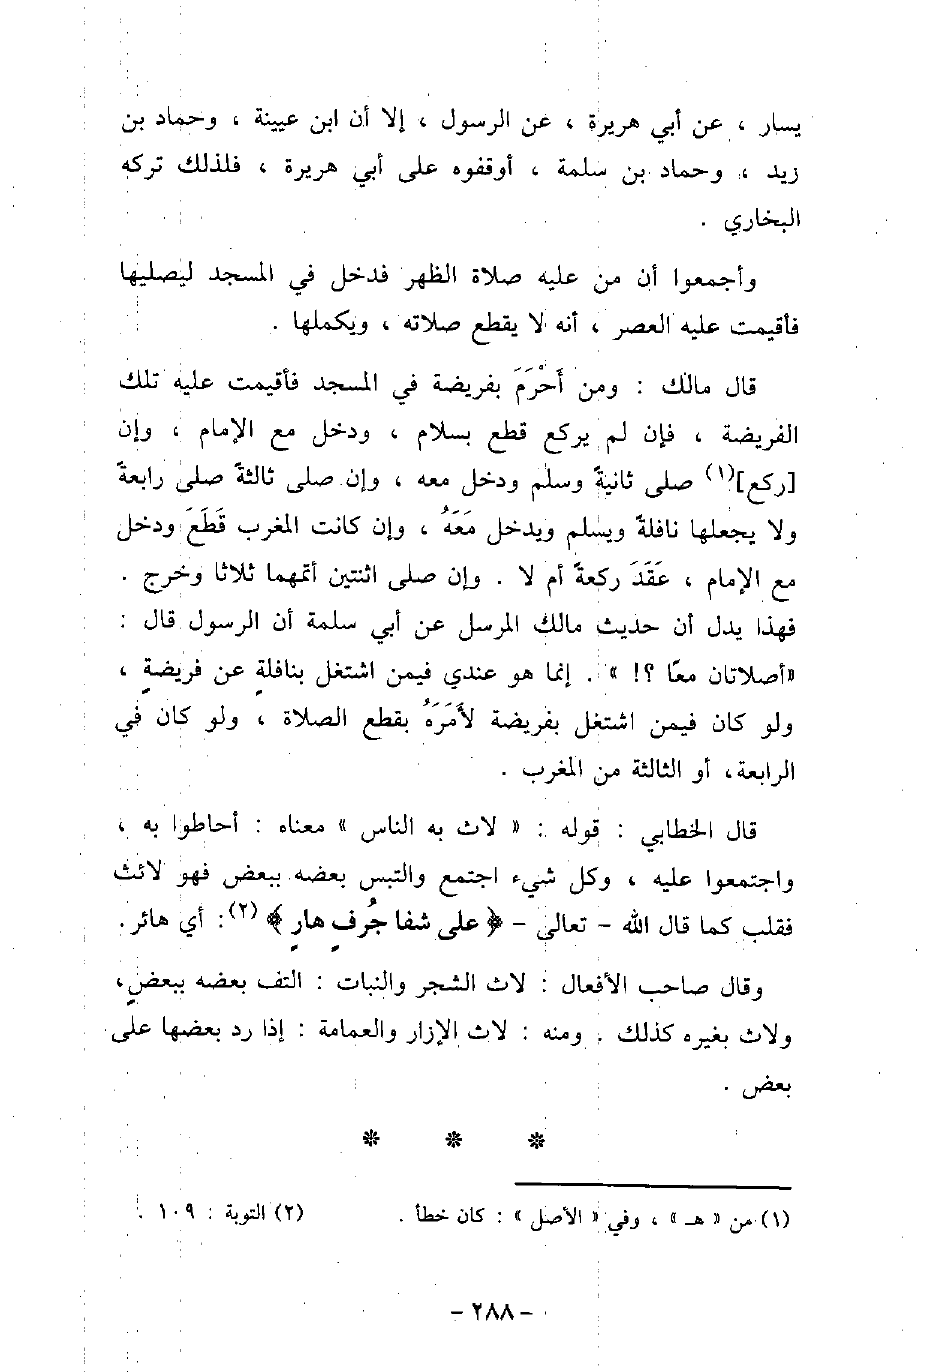 يسار ، عن أبي هريرة ، عن الرسول ، إلا أن ابن عيينة ، وحماد بن
زيد ، وحماد بن سلمة ، أوقفوه على أبي هريرة ، فلذلك تركه
البخاري .
وأجمعوا أن من عليه صلاة الظهر فدخل في المسجد ليصليها
فأقيمت عليه العصر ، أنه لا يقطع صلاته ، ويكملها .
قال مالك : ومن أَحْرَمَ بفريضة في المسجد فأقيمت عليه تلك
الفريضة ، فإن لم يركع قطع بسلام ، ودخل مع الإمام ، وإن
[ركع](١) صلى ثانيةً وسلم ودخل معه ، وإن صلى ثالثةً صلى رابعةً
ولا يجعلها نافلةً ويسلم ويدخل مَعَهُ ، وإن كانت المغرب قَطَعَ ودخل
مع الإمام ، عَقَدَ ركعةً أم لا . وإن صلى اثنتين أتمهما ثلاثا وخرج .
فهذا يدل أن حديث مالك المرسل عن أبي سلمة أن الرسول قال :
«أصلاتان معًا ؟! » . إنما هو عندي فيمن اشتغل بنافلةٍ عن فريضةٍ ،
ولو كان فيمن اشتغل بفريضة لأَمَرَهُ بقطع الصلاة ، ولو كان في
الرابعة، أو الثالثة من المغرب .
قال الخطابي : قوله : « لاث به الناس » معناه : أحاطوا به ،
واجتمعوا عليه ، وكل شيء اجتمع والتبس بعضه ببعض فهو لائث
فقلب كما قال الله – تعالى – ﴿ على شفا جُرفٍ هارٍ ﴾ (٢): أي هائر.
وقال صاحب الأفعال : لاث الشجر والنبات : التف بعضه ببعضٍ،
ولاث بغيره كذلك . ومنه : لاث الإزار والعمامة : إذا رد بعضها على
بعض .
* * *
(١) من « هـ » ، وفي « الأصل » : كان خطأ . (٢) التوبة : ١٠٩ .
– ٢٨٨ –